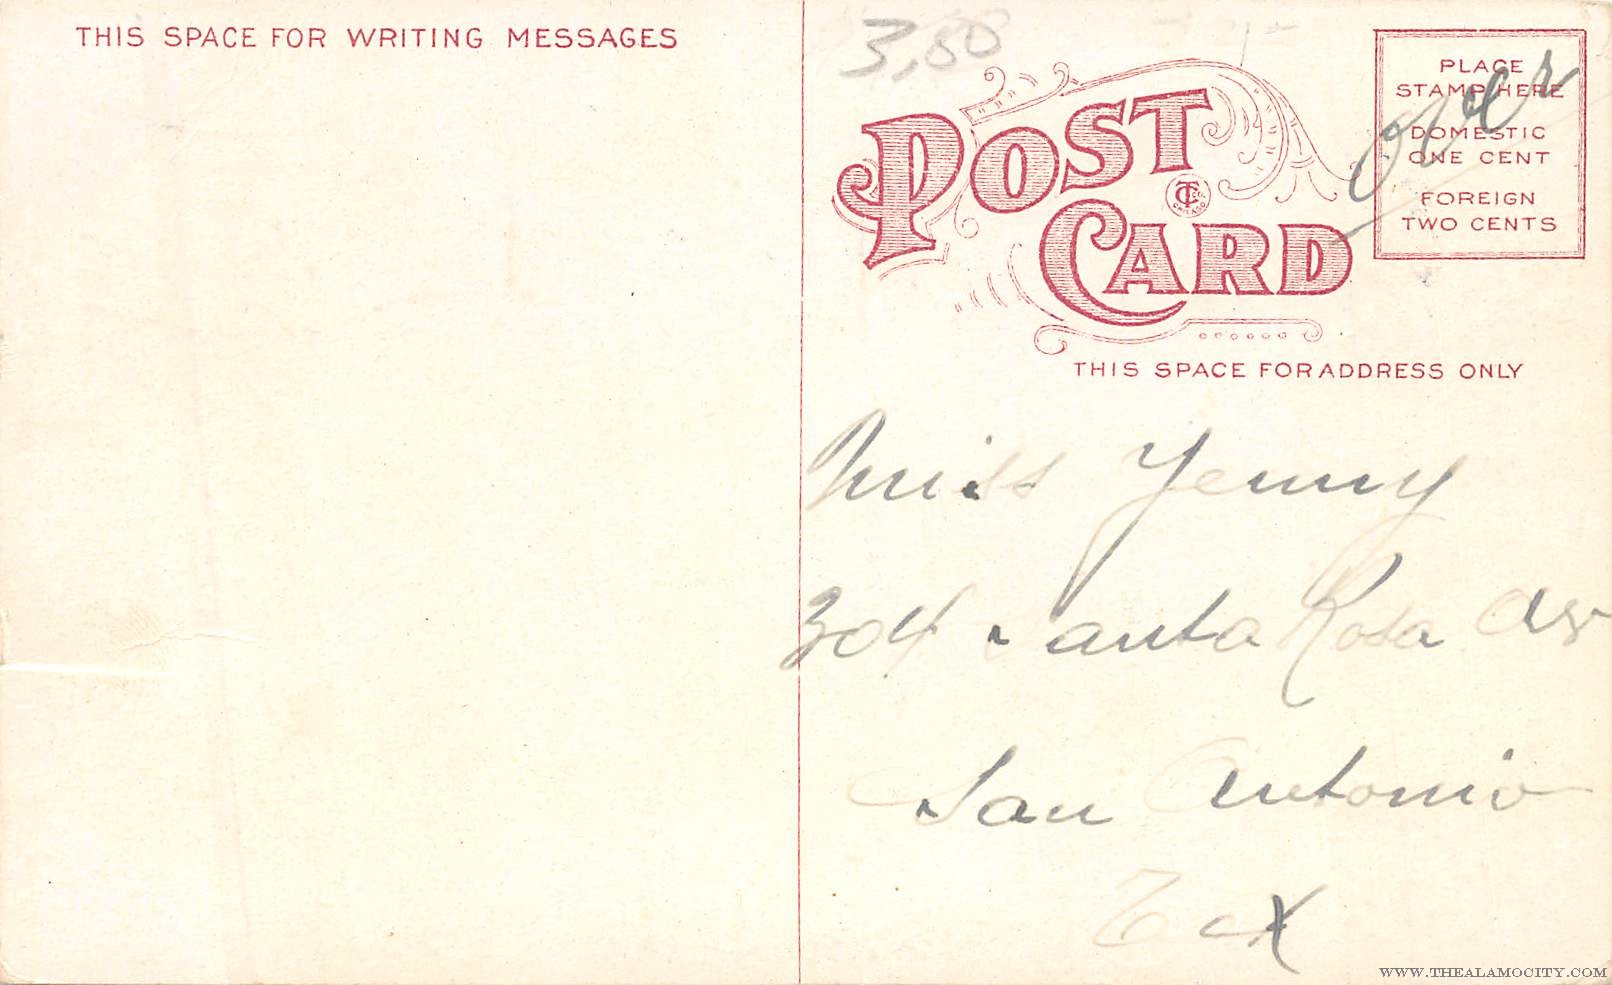 THIS SPACE FOR WRITING MESSAGES
3,50
POST
CARD
PLACE
STAMP HERE
DOMESTIC
ONE CENT
FOREIGN
TWO CENTS
over
THIS SPACE FOR ADDRESS ONLY
Miss Jenny
304 Santa Rosa Av
San Antonio
Tex
WWW.THEALAMOCITY.COM